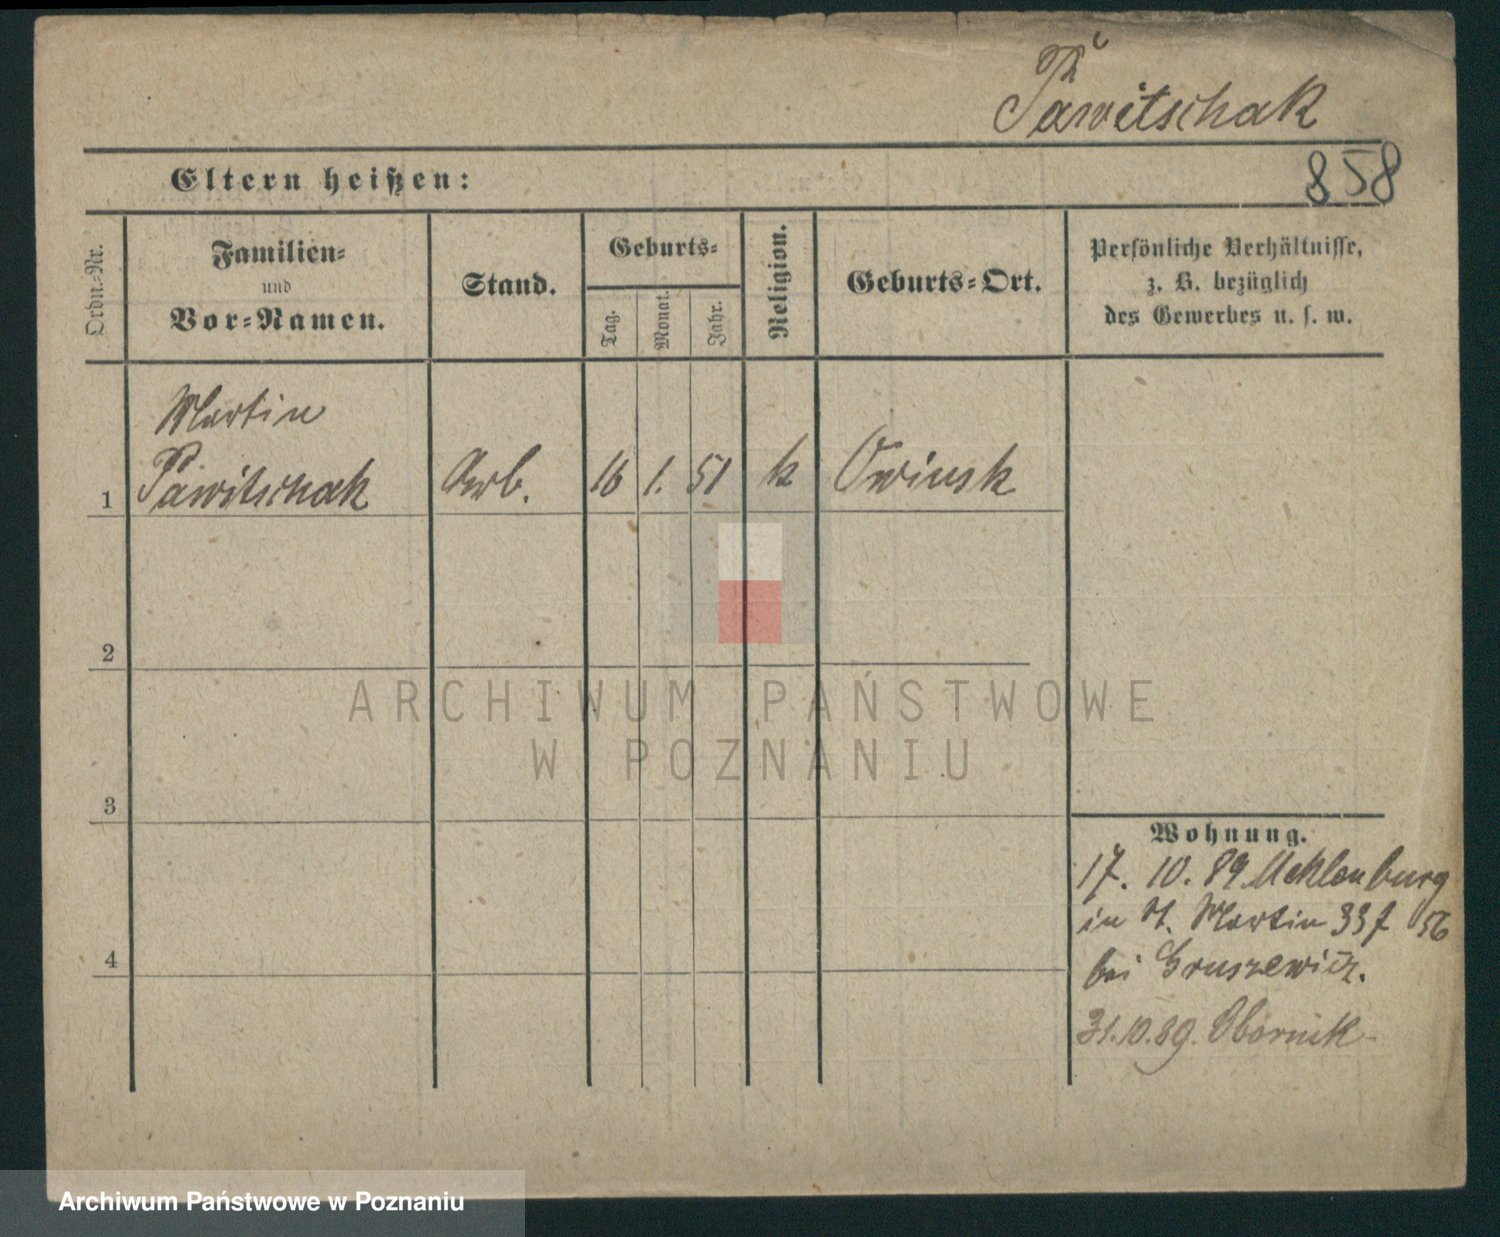 Pawitschak
858
Eltern heißen:
Ordn.-Nr.
Familien-
und
Vor-Namen.
Stand.
Geburts-
Tag.
Monat.
Jahr.
Religion.
Geburts-Ort.
Persönliche Verhältnisse,
z. B. bezüglich
des Gewerbes u. s. w.
Martin
1 Pawitschak Arb. 16 1. 51 k Owinsk
2
3
4
Wohnung.
17. 10. 89 Meklenburg
in St. Martin 33 56
bei Gruszewicz.
31.10.89. Obornik
ARCHIWUM PAŃSTWOWE
W POZNANIU
Archiwum Państwowe w Poznaniu